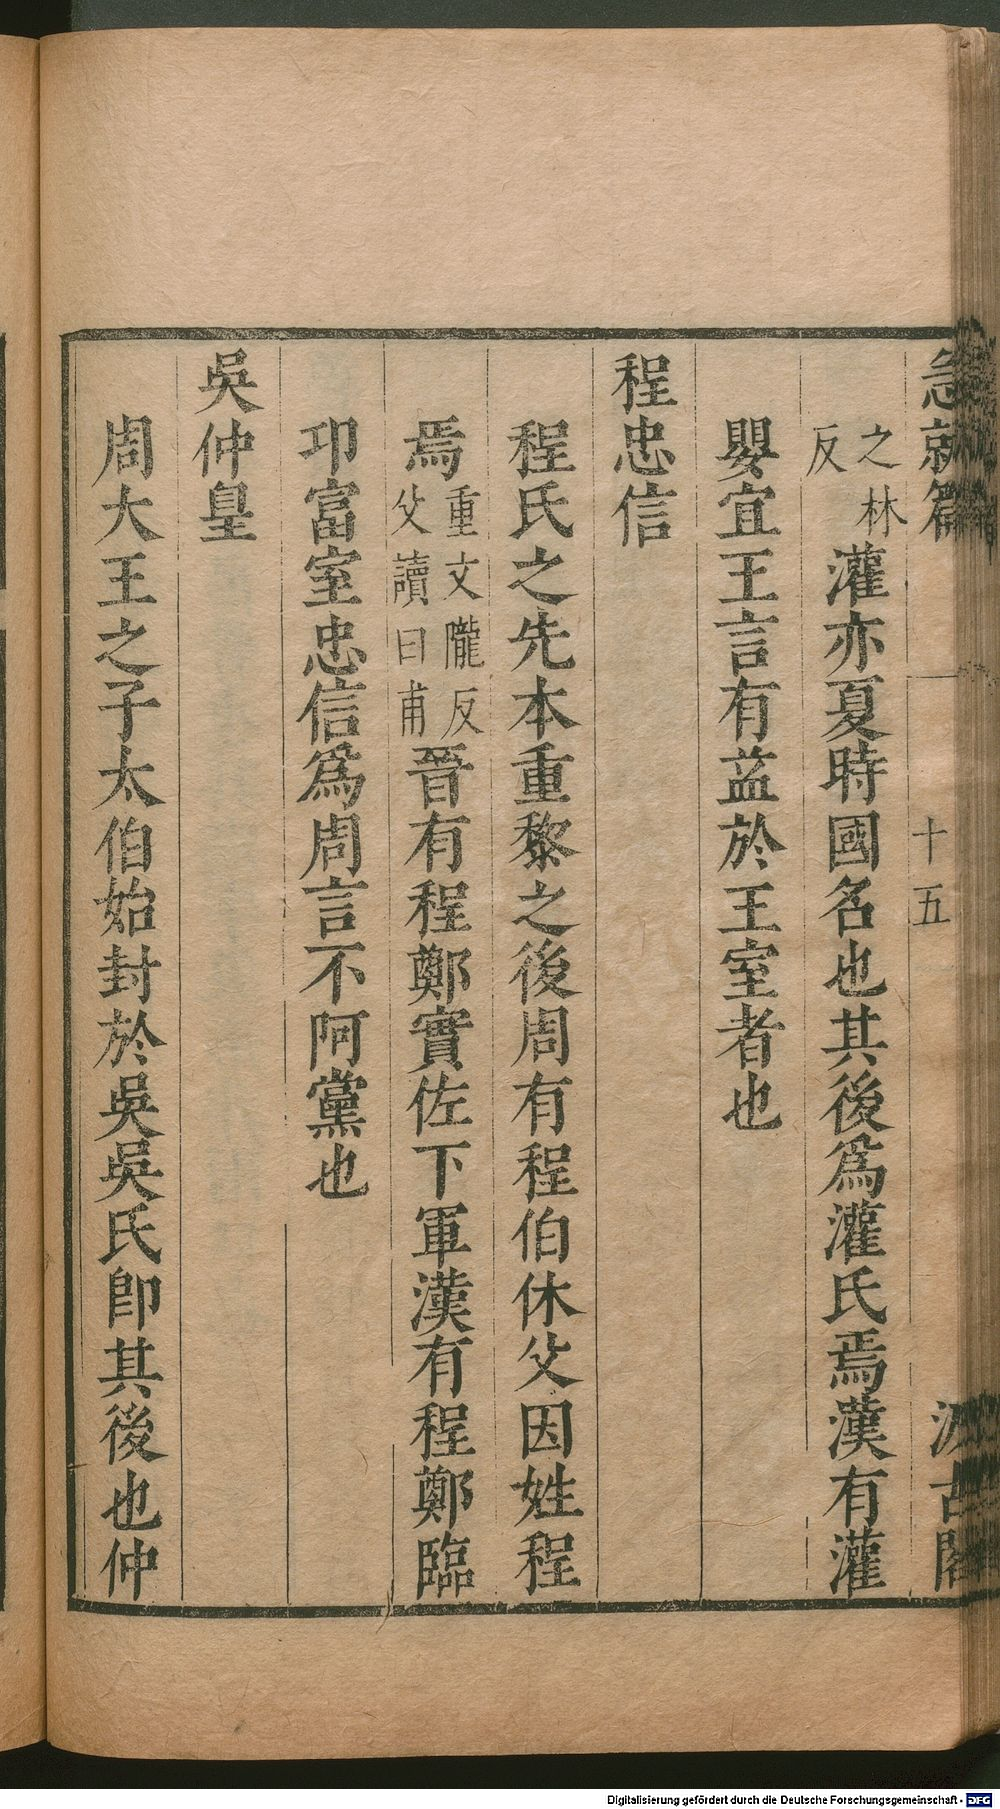 急就篇 十五 汲古閣
之林反灌亦夏時國名也其後爲灌氏焉漢有灌
嬰宜王言有益於王室者也
程忠信
程氏之先本重黎之後周有程伯休父因姓程
焉重文隴反父讀曰甫晉有程鄭實佐下軍漢有程鄭臨
卭富室忠信爲周言不阿黨也
吳仲皇
周大王之子太伯始封於吳吳氏卽其後也仲
Digitalisierung gefördert durch die Deutsche Forschungsgemeinschaft - DFG